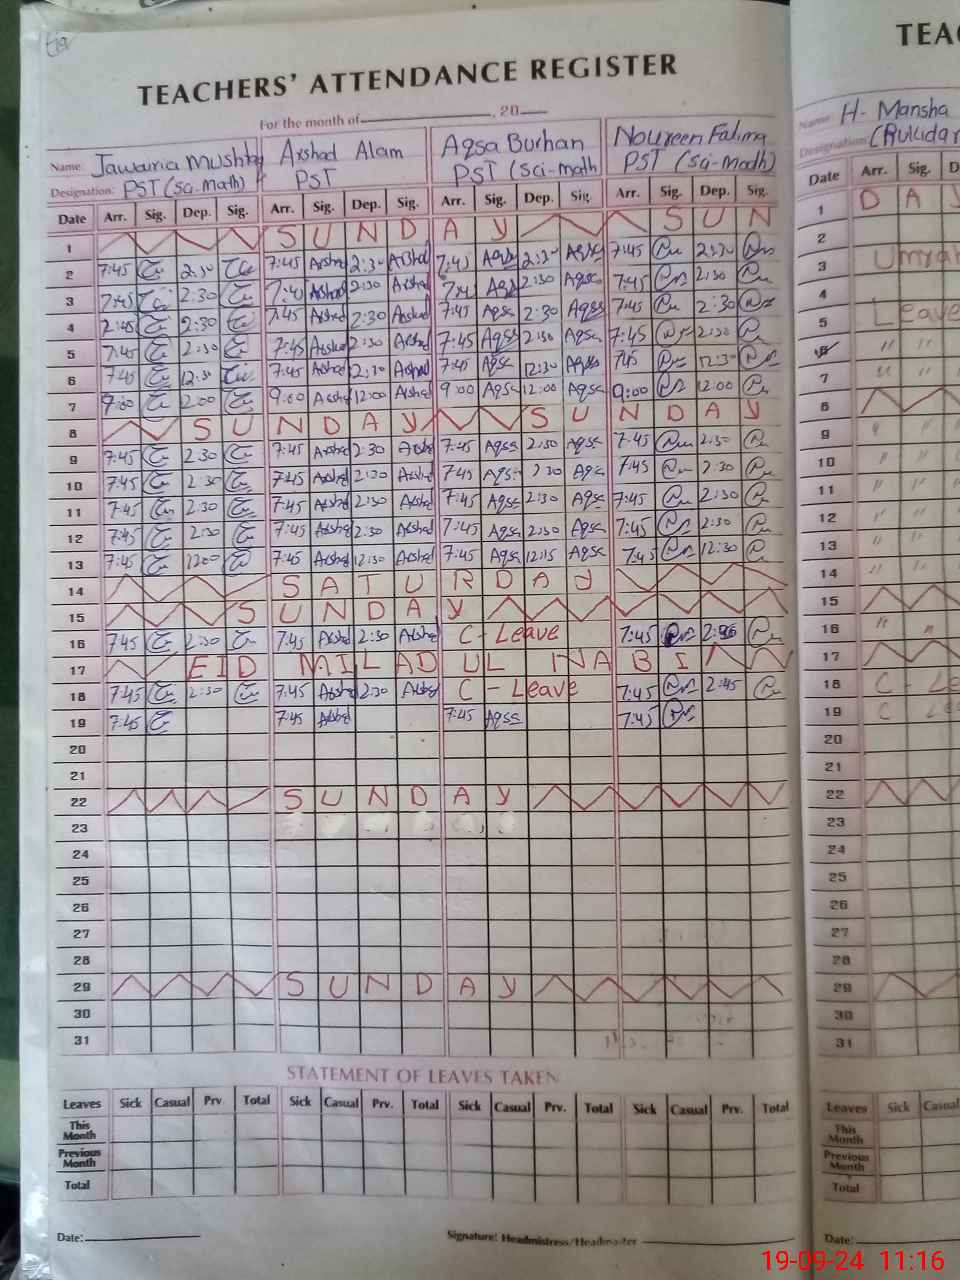 TEACHERS' ATTENDANCE REGISTER
For the month of , 20
Name: Jawaria Mushtaq Arshad Alam Aqsa Burhan Noureen Fatima
Designation: PST (sci.math) PST PST (sci-math PST (sci-math)
Date Arr. Sig. Dep. Sig. Arr. Sig. Dep. Sig. Arr. Sig. Dep. Sig. Arr. Sig. Dep. Sig.
1 S U N D A Y S U N
2 7:45 2:30 7:45 Arshad 2:30 Arshad 7:45 Aqsa 2:30 Aqsa 7:45 2:30
3 7:45 2:30 7:45 Arshad 2:30 Arshad 7:45 Aqsa 2:30 Aqsa 7:45 2:30
4 2:45 2:30 7:45 Arshad 2:30 Arshad 7:45 Aqsa 2:30 Aqsa 7:45 2:30
5 7:45 2:30 7:45 Arshad 2:30 Arshad 7:45 Aqsa 2:30 Aqsa 7:45 2:30
6 7:45 12:30 7:45 Arshad 12:30 Arshad 7:45 Aqsa 12:30 Aqsa 7:45 12:30
7 9:00 12:00 9:00 Arshad 12:00 Arshad 9:00 Aqsa 12:00 Aqsa 9:00 12:00
8 S U N D A Y S U N D A Y
9 7:45 2:30 7:45 Arshd 2:30 Arshd 7:45 Aqsa 2:30 Aqsa 7:45 2:30
10 7:45 2:30 7:45 Arshd 2:30 Arshd 7:45 Aqsa 2:30 Aqsa 7:45 2:30
11 7:45 2:30 7:45 Arshd 2:30 Arshd 7:45 Aqsa 2:30 Aqsa 7:45 2:30
12 7:45 2:30 7:45 Arshd 2:30 Arshd 7:45 Aqsa 2:30 Aqsa 7:45 2:30
13 7:45 7:45 Arshd 12:30 Arshd 7:45 Aqsa 12:15 Aqsa 7:45 12:30
14 S A T U R D A Y
15 S U N D A Y
16 7:45 2:30 7:45 Arshd 2:30 Arshd C - Leave 7:45
17 EID MILAD UL NABI
18 7:45 2:30 7:45 Arshd 2:30 Arshd C - Leave 7:45 2:45
19 7:45 7:45 Arshd 7:45 Aqsa 7:45
20
21
22 S U N D A Y
23
24
25
26
27
28
29 S U N D A Y
30
31
STATEMENT OF LEAVES TAKEN
Leaves Sick Casual Prv. Total Sick Casual Prv. Total Sick Casual Prv. Total Sick Casual Prv. Total
This Month
Previous Month
Total
Date: Signature: Headmistress/Headmaster
TEAC
Name: H- Mansha
Designation
Date Arr. Sig. D
1 D A Y
2
3 Umrah
4
5 Leave
6 " "
7 " "
8
9 " "
10 " "
11 " "
12 " "
13 " "
14 " "
15
16 " "
17
18 C - Le
19 C Le
20
21
22
23
24
25
26
27
28
29
30
31
Leaves Sick Casual
This Month
Previous Month
Total
Date:
19-09-24 11:16